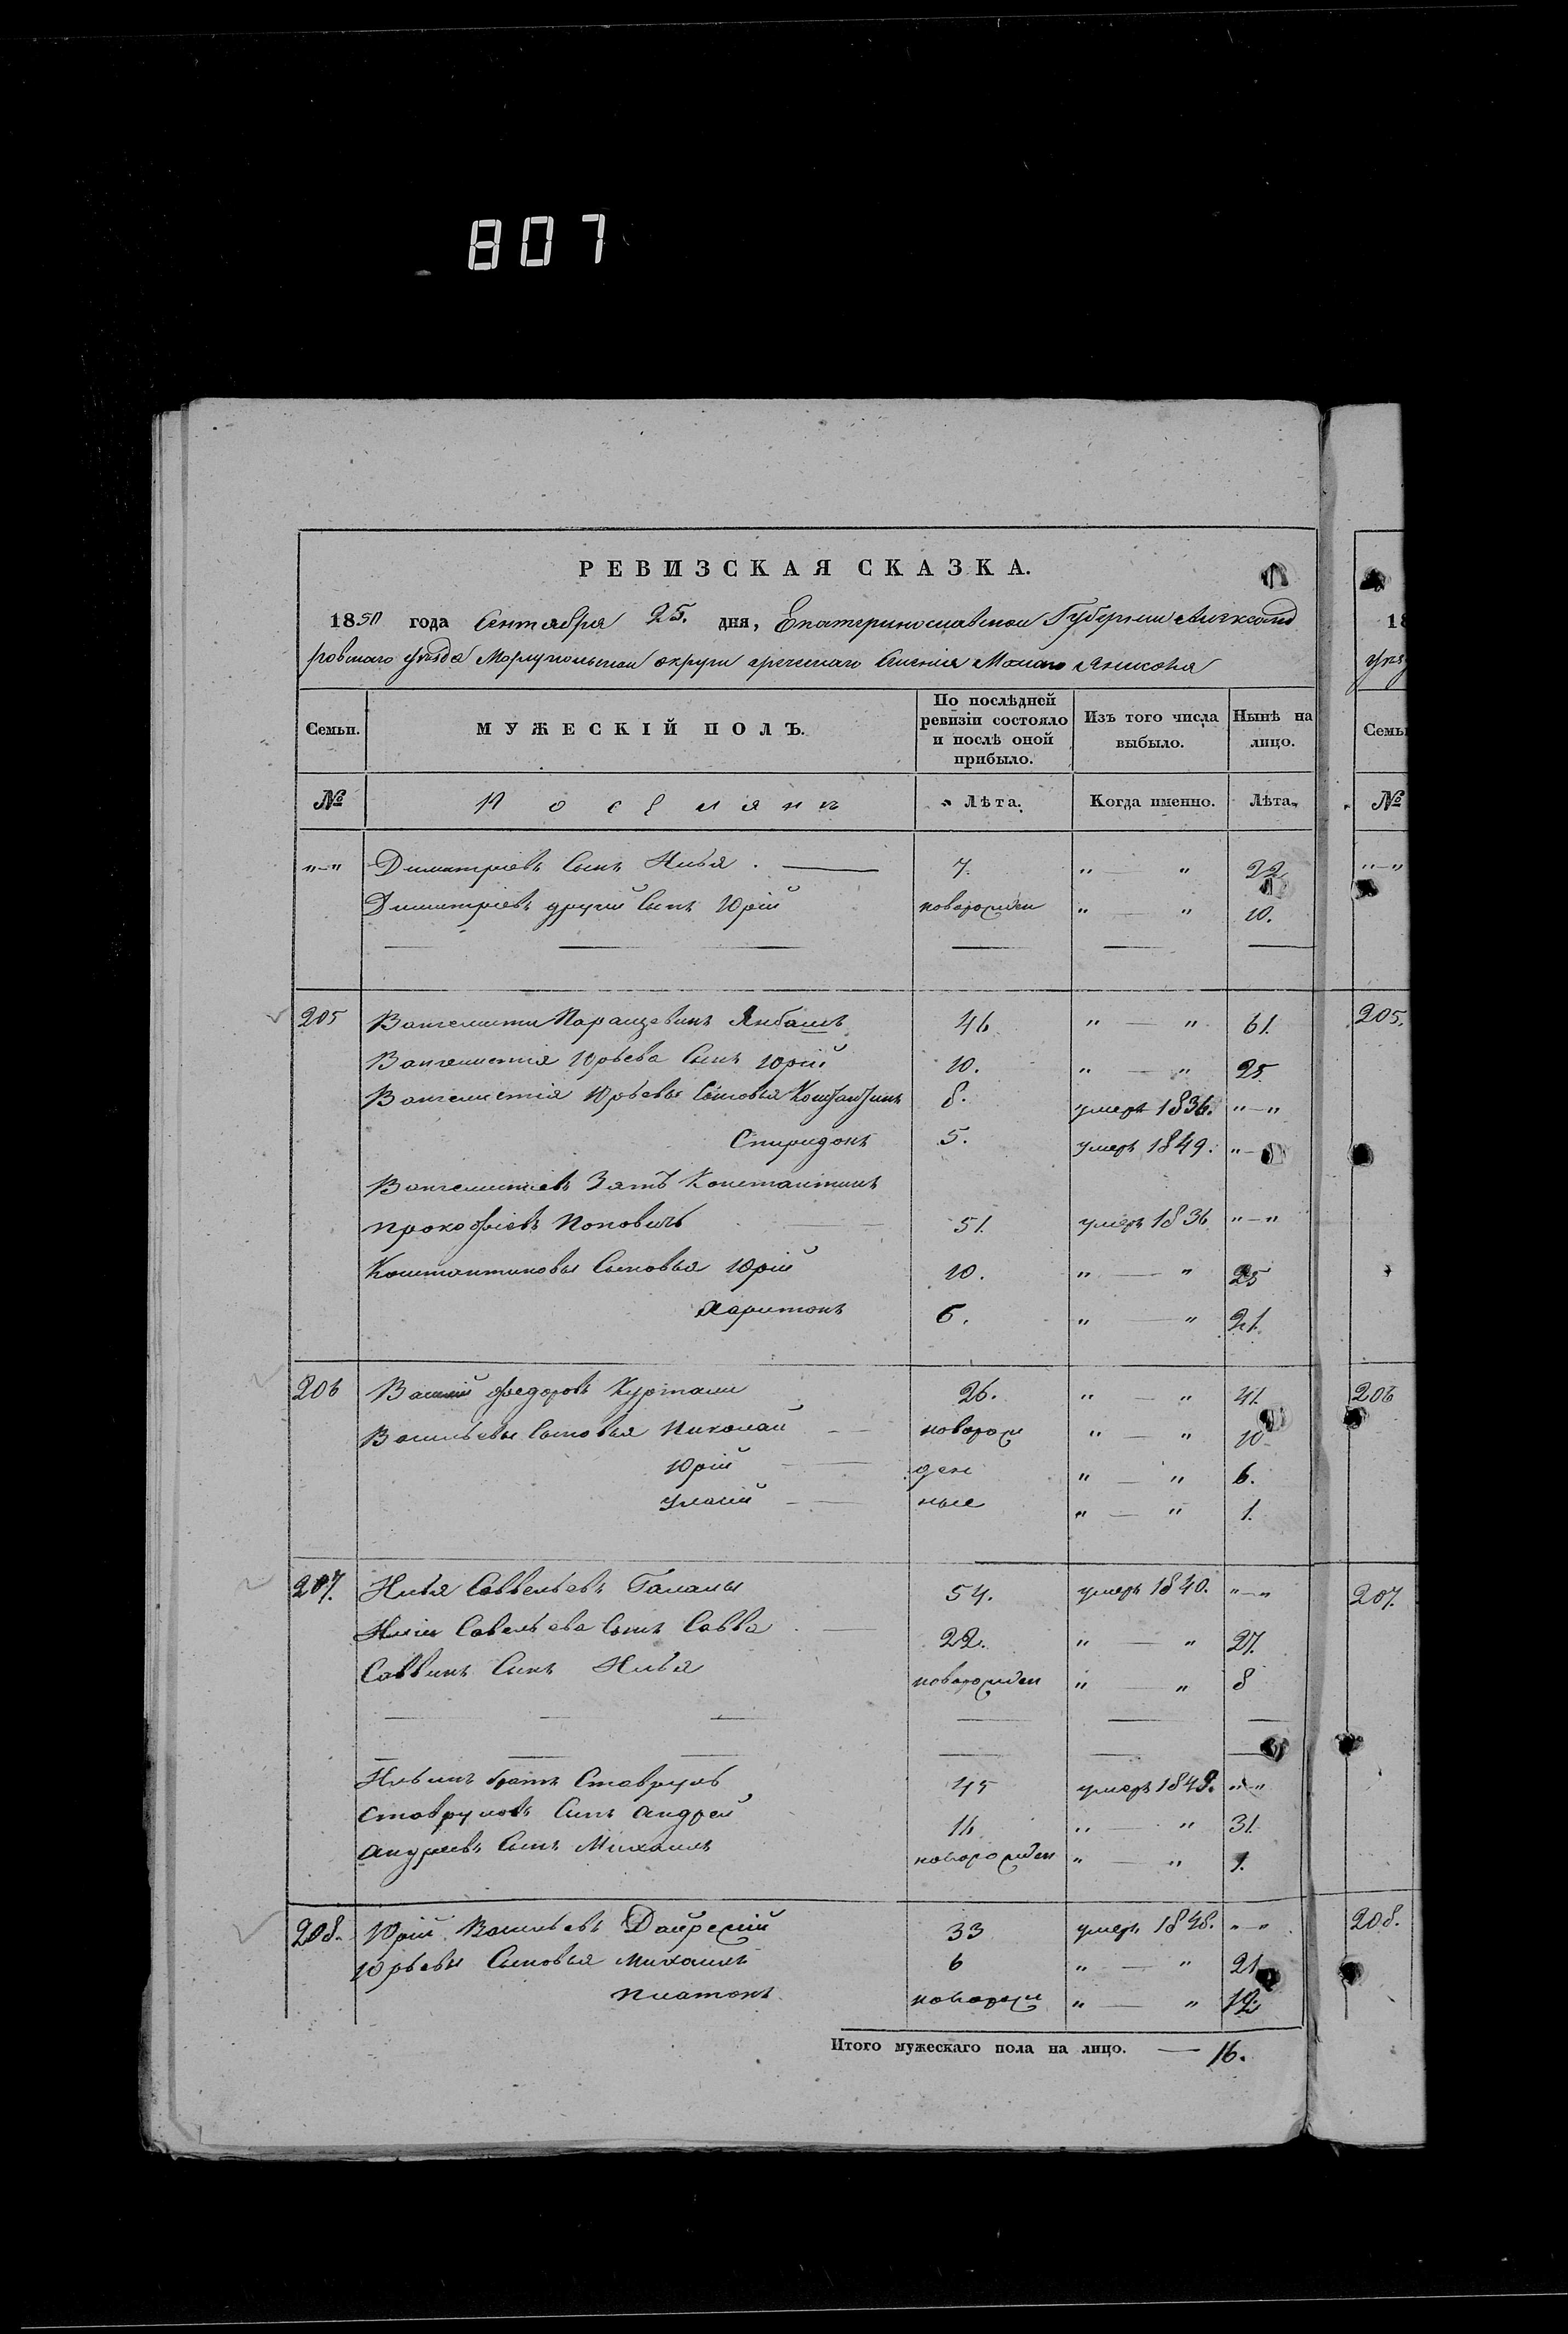 807
РЕВИЗСКАЯ СКАЗКА.
1850 года Сентября 25. дня, Екатеринославской Губернии Александ
ровскаго уезда Мариупольскаго округи греческаго Селенія Малаго Янисоля
Семьи. МУЖЕСКІЙ ПОЛЪ. По послѣдней ревизіи состояло и послѣ оной прибыло. Изъ того числа выбыло. Нынѣ на лицо.
№ Поселянъ Лѣта. Когда именно. Лѣта.
"–" Димитріевъ Сынъ Илья 7. " — " 22
Димитріевъ другій Сынъ Юрій новорожден " — " 10.
205 Вангелисти Янбашъ 46 " — " 61.
Вангелистія Юрьева Сынъ Юрій 10. " — " 25
Вангелистія Юрьевы Сыновья Константинъ 8. умеръ 1836. "–"
Спиридонъ 5. умеръ 1849. "–
Вангелистіевъ Зять Константинъ
Прокофіевъ Поповичъ 51. умеръ 1836 "–"
Константиновы Сыновья Юрій 10. " — " 25
Харитонъ 6. " — " 21.
206 Василій Федоровъ Куртали 26. " — " 41.
Васильевы Сыновья Николай новорож " — " 10
Юрій ден " — " 6.
ные " — " 1.
207. Илья Саввельевъ Галалы 54. умеръ 1840. "–"
Ильи Савельева Сынъ Савва 22. " — " 27.
Саввинъ Сынъ Илья новорожден " — " 8
Ильинъ братъ Ставруль 45 умеръ 1848. "–"
Ставруловъ Сынъ Андрей 16 " — " 31.
Андреевъ Сынъ Михаилъ новорожден " — " 1.
208. Юрій Васильевъ Дайрежій 33 умеръ 1848. "–"
Юрьевы Сыновья Михаилъ 6 " — " 21
Платонъ новорож " — " 12
Итого мужескаго пола на лицо. — 16.
18
уез
Семьи
№
"–"
205.
206
207.
208.